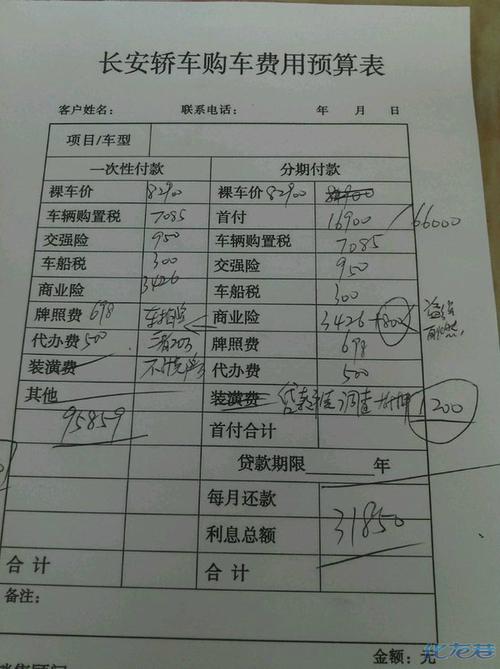 长安轿车购车费用预算表
客户姓名： 联系电话： 年 月 日
项目/车型
一次性付款 分期付款
裸车价 82900 裸车价 82900 81900
车辆购置税 7085 首付 16900 / 66000
交强险 950 车辆购置税 7085
车船税 300 交强险 950
商业险 3426 车船税 300
牌照费 698 车损 商业险 3426 +800
代办费 500 三者20万 牌照费 698
装潢费 不计免 代办费 500
其他 装潢费 贷款 调查 1200
95859 首付合计
贷款期限 年
每月还款
利息总额 31850
合计 合计
备注：
金额： 元
化龙巷